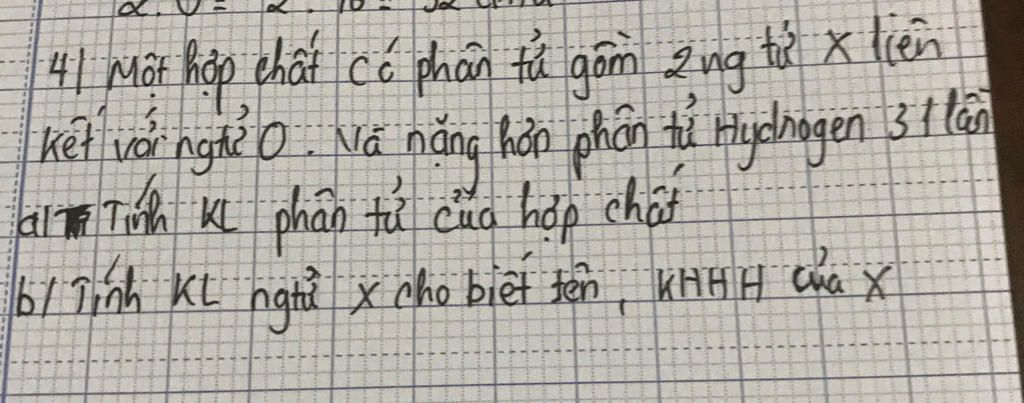 2.O = 2.16 = 32 amu
4/ Một hợp chất có phân tử gồm 2 ng tử X liên
kết với ngtử O. Và nặng hơn phân tử Hydrogen 31 lần
a/ Tính KL phân tử của hợp chất
b/ Tính KL ngtử X cho biết tên, KHHH của X